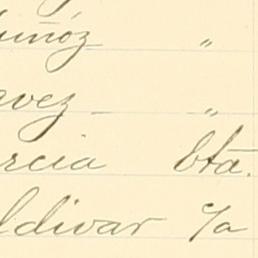 uñóz "
avez "
rcia bta.
ldivar c/a